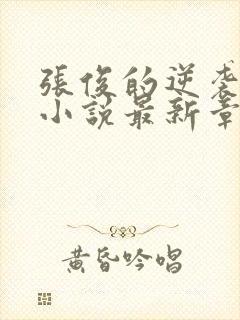 張俊的逆袭
小说最新章
黄昏吟唱